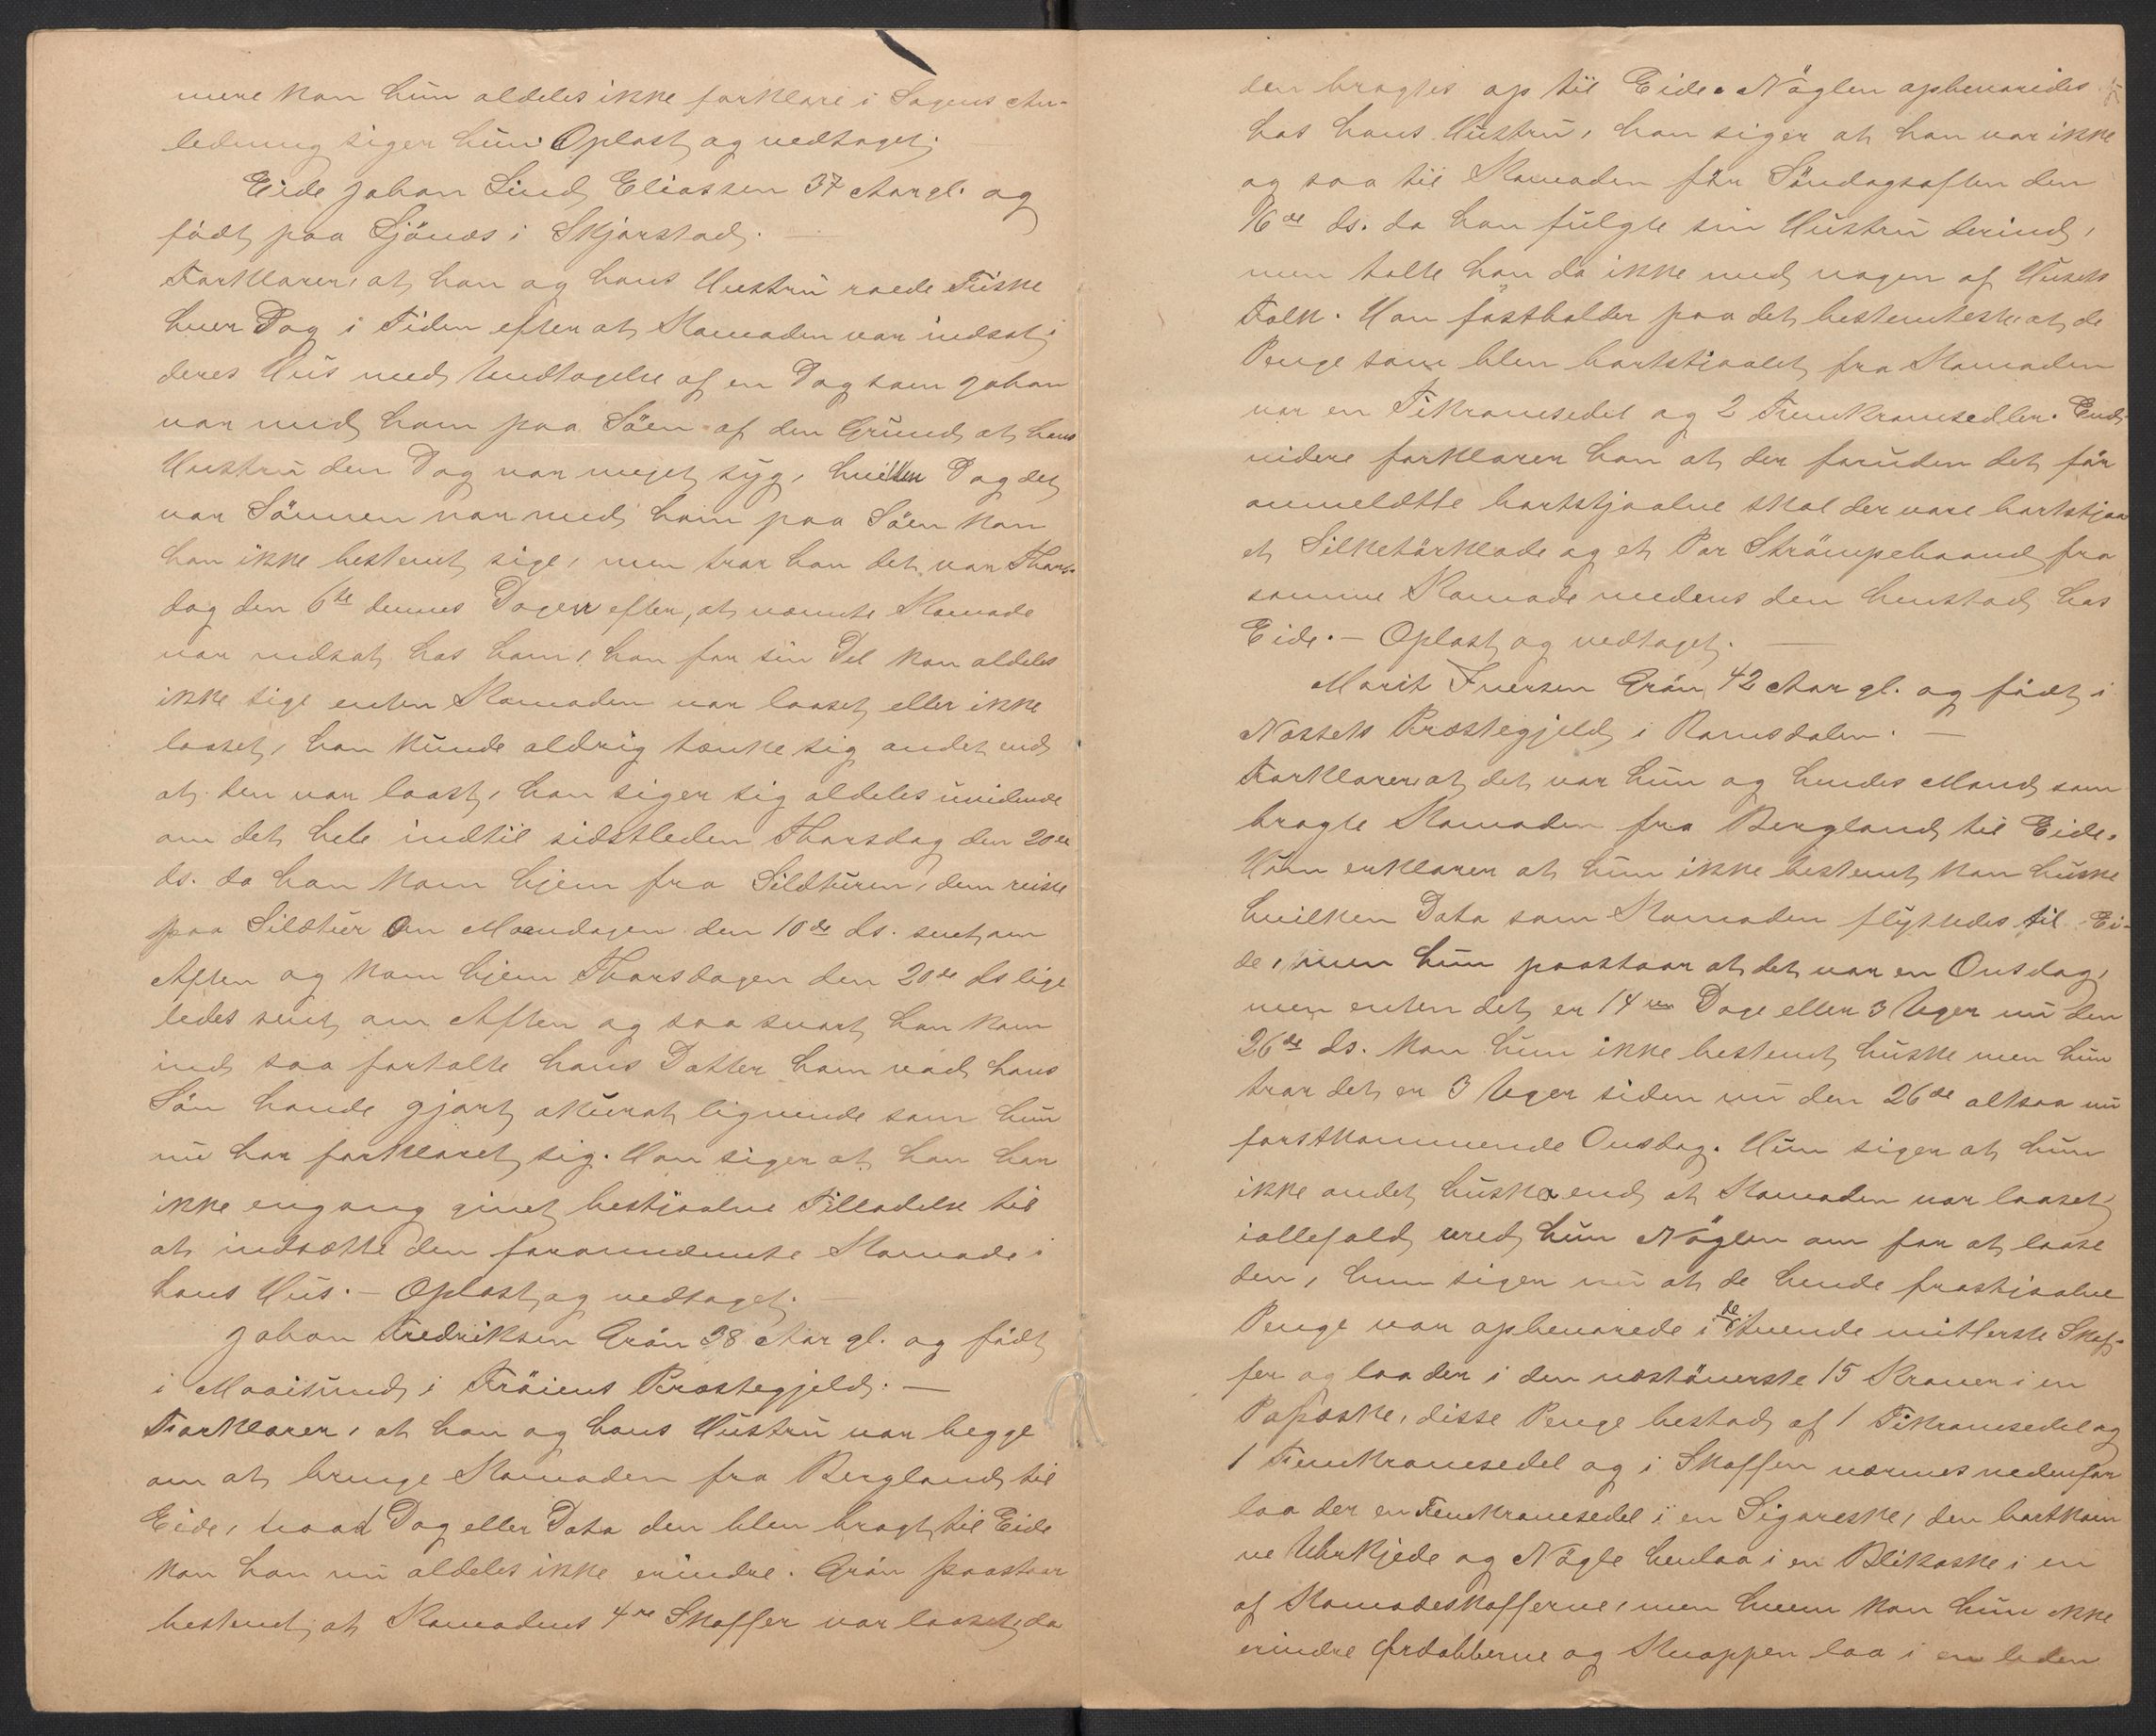 mere kan hun aldeles ikke forklare i Sagens An-
ledning siger hun. Oplæst og vedtaget.
Eide Johan Lind Eliassen 37 Aar gl. og
födt paa Sjönæs i Skjærstad. —
Forklarer, at han og hans Hustru roede Fiske
hver Dag i Tiden efter at Komoden var indsat i
deres Hus med Undtagelse af en Dag som Johan
var med ham paa Söen af den Grund at hans
Hustru den Dag var meget syg, hvilken Dag det
var Sönnen var med ham paa Söen kan
han ikke bestemt sige, men tror han det var Thors-
dag den 6te dennes Dagen efter, at nævnte Komode
var indsat hos ham, han for sin Del kan aldeles
ikke sige enten Komoden var laaset eller ikke
laaset, han kunde aldrig tænke sig andet end
at den var laast, han siger sig aldeles uvidende
om det hele indtil sidstleden Thorsdag den 20de
ds. da han kom hjem fra Sildturen, dem reiste
paa Sildtur om Mandagen den 10de ds. sent om
Aften og kom hjem Thorsdagen den 20de ds lige
ledes sent om Aften og saa snart han kom
ind saa fortalte hans Datter ham vad hans
Sön havde gjort akurat lignende som hun
nu har forklaret sig. Han siger at han har
ikke engang givet bestjaalne Tilladelse til
at indsætte den forannævnte Komode i
hans Hus. — Oplæst og vedtaget. —
Johan Fredriksen Grön 38 Aar gl. og födt
i Maaisund i Fröiens Præstegjeld. —
Forklarer, at han og hans Hustru var begge
om at bringe Komoden fra Bergland til
Eide, vaad Dag eller Data den blev bragt til Eide
kan han nu aldeles ikke erindre. Grön paastaar
bestemt at Komodens 4re Skoffer var laaset da
den bragtes op til Eide. Nöglen opbevaredes
hos hans Hustru, han siger at han var ikke
og saa til Komoden för Söndagsaften den
16de ds. da han fulgte sin Hustru derind,
men talte han da ikke med nogen af Husets
Folk. Han fastholder paa det bestemteste at de
Penge som blev bortstjaalet fra Komoden
var en Tikronesedel og 2 Femkronesedler. End-
videre forklarer han at der foruden det för
anmeldtte bortstjaalne skal der være bortstjaa
et Silketörklæde og et Par Strömpebaand fra
samme Komode medens den henstod hos
Eide. — Oplæst og vedtaget. —
Marit Iversen Grön, 42 Aar gl. og födt i
Næssets Præstegjeld i Romsdalen. —
Forklarer at det var hun og hendes Mand som
bragte Komoden fra Bergland til Eide.
Hun erklærer at hun ikke bestemt kan huske
hvilken Data som Komoden flyttedes til Ei-
de, men hun paastaar at det var en Onsdag,
men enten det er 14 Dage eller 3 Uger nu den
26de ds. kan hun ikke bestemt huske men hun
tror det er 3 Uger siden nu den 26de altsaa nu
forstkommende Onsdag. Hun siger at hun
ikke andet husker end at Komoden var laaset
iallefald vred hun Nöglen om for at laase
den, hun siger nu at de hende frastjaalne
Penge var opbevarede i de tvende mitterste Skof-
fer og laa der i den næstöverste 15 Kroner i en
Papæske, disse Penge bestod af 1 Tikronesedel og
1 Femkronesedel og i Skoffen nærmes nedenfor
laa der en Femkronesedel i en Sigareske, den bortkom
ne Uhrkjede og Nögle henlaa i en Blikæske i en
af Komodeskofferne, men hvem kan hun ikke
erindre Ørdobberne og Knappen laa i en leden